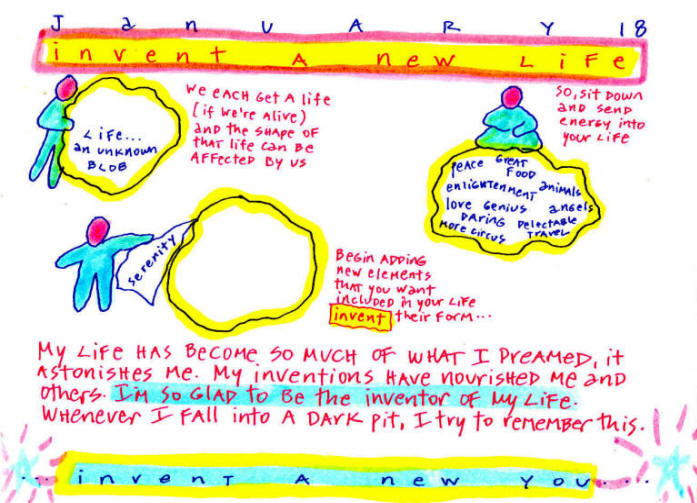 JANUARY 18
invent A new LiFe
We eACH Get A life
(if we're Alive)
and the shape of
that life can be
AFFected by us
LiFe...
an unknown
BLOB
So, sit Down
and send
energy into
your LiFe
peace GreAt
FOOD
enlightenment animals
love Genius angels
DARing Delectable
More circus TRAVeL
serenity
Begin ADDing
new elements
that you want
included in your Life
invent their Form...
My LiFe HAS BeCome SO MUCH OF WHAT I DreAMeD, it
AStonisHes Me. My inventions HAVe nourisHeD Me anD
others. I'm so GLAD to Be the inventor OF My LiFe.
WHenever I FALL into A DARK pit, I try to reMeMBer this.
invenT A new YOU